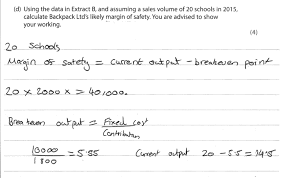 (d) Using the data in Extract B, and assuming a sales volume of 20 schools in 2015,
calculate Backpack Ltd's likely margin of safety. You are advised to show
your working.
(4)
20 Schools
Margin of safety = current output - breakeven point
20 x 2000 x = 40,000.
Breakeven output = Fixed cost
Contribution
10000
1800
= 5.55
Current output 20 - 5.5 = 14.5